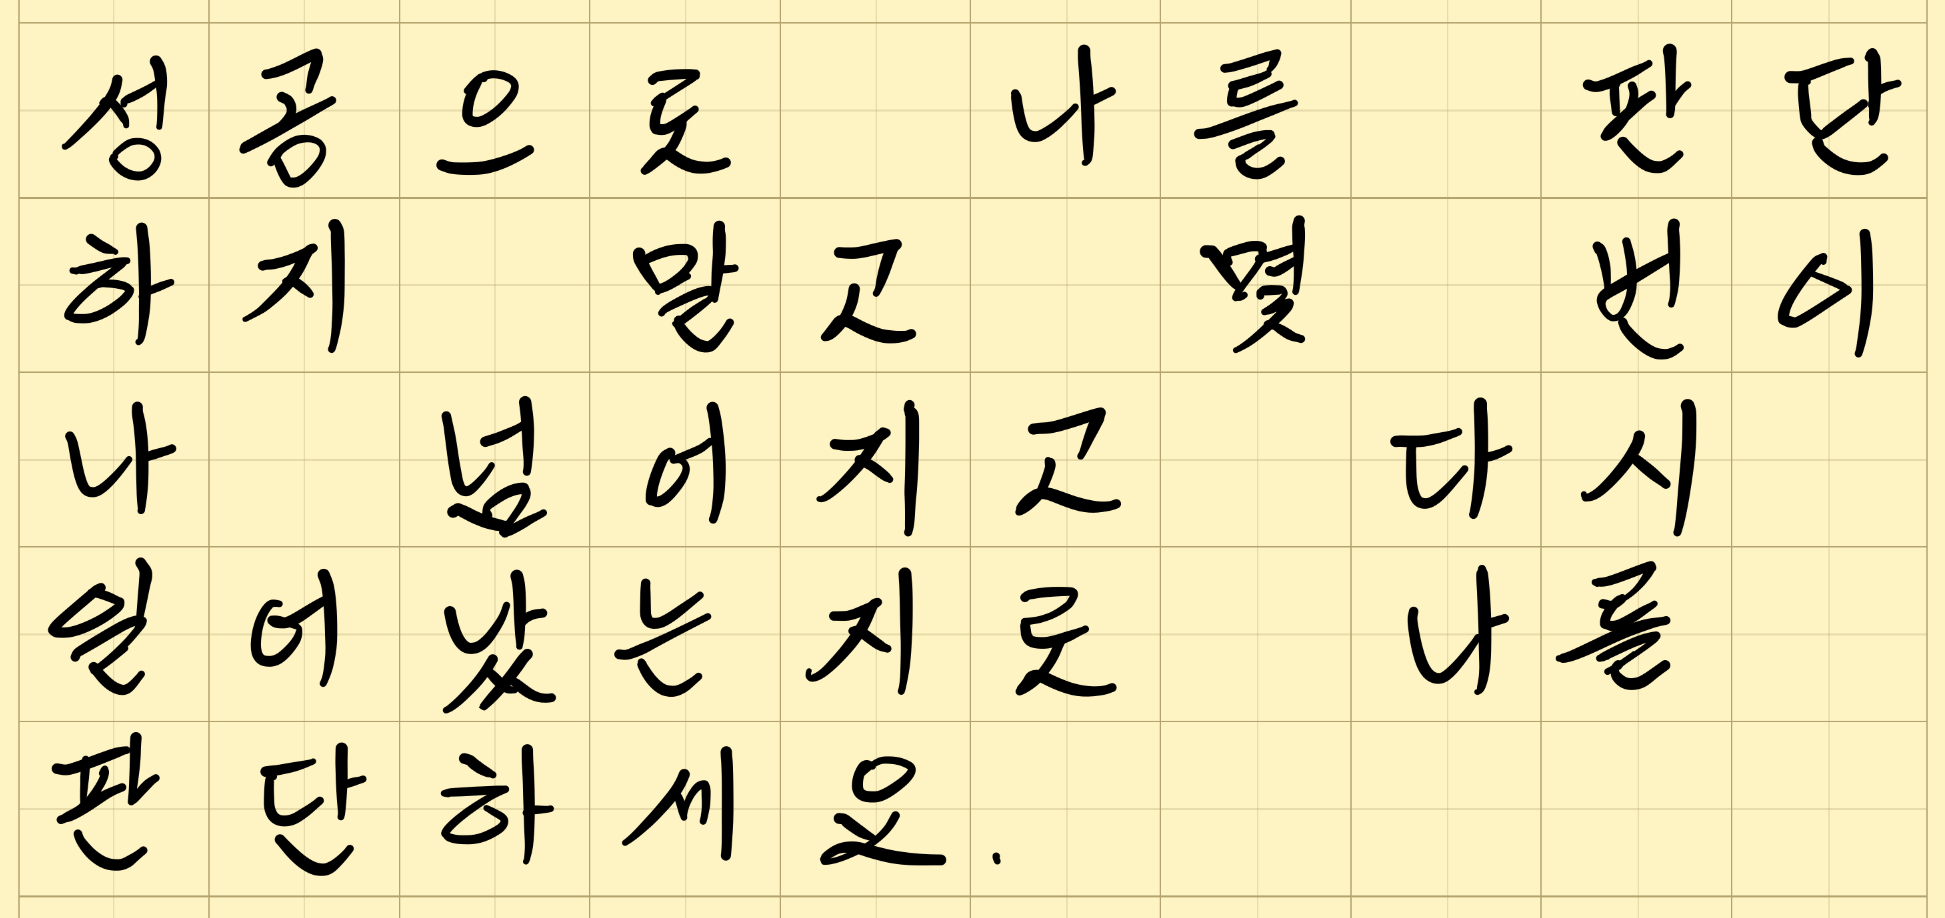 성공으로 나를 판단
하지 말고 몇 번이
나 넘어지고 다시
일어났는지로 나를
판단하세요.